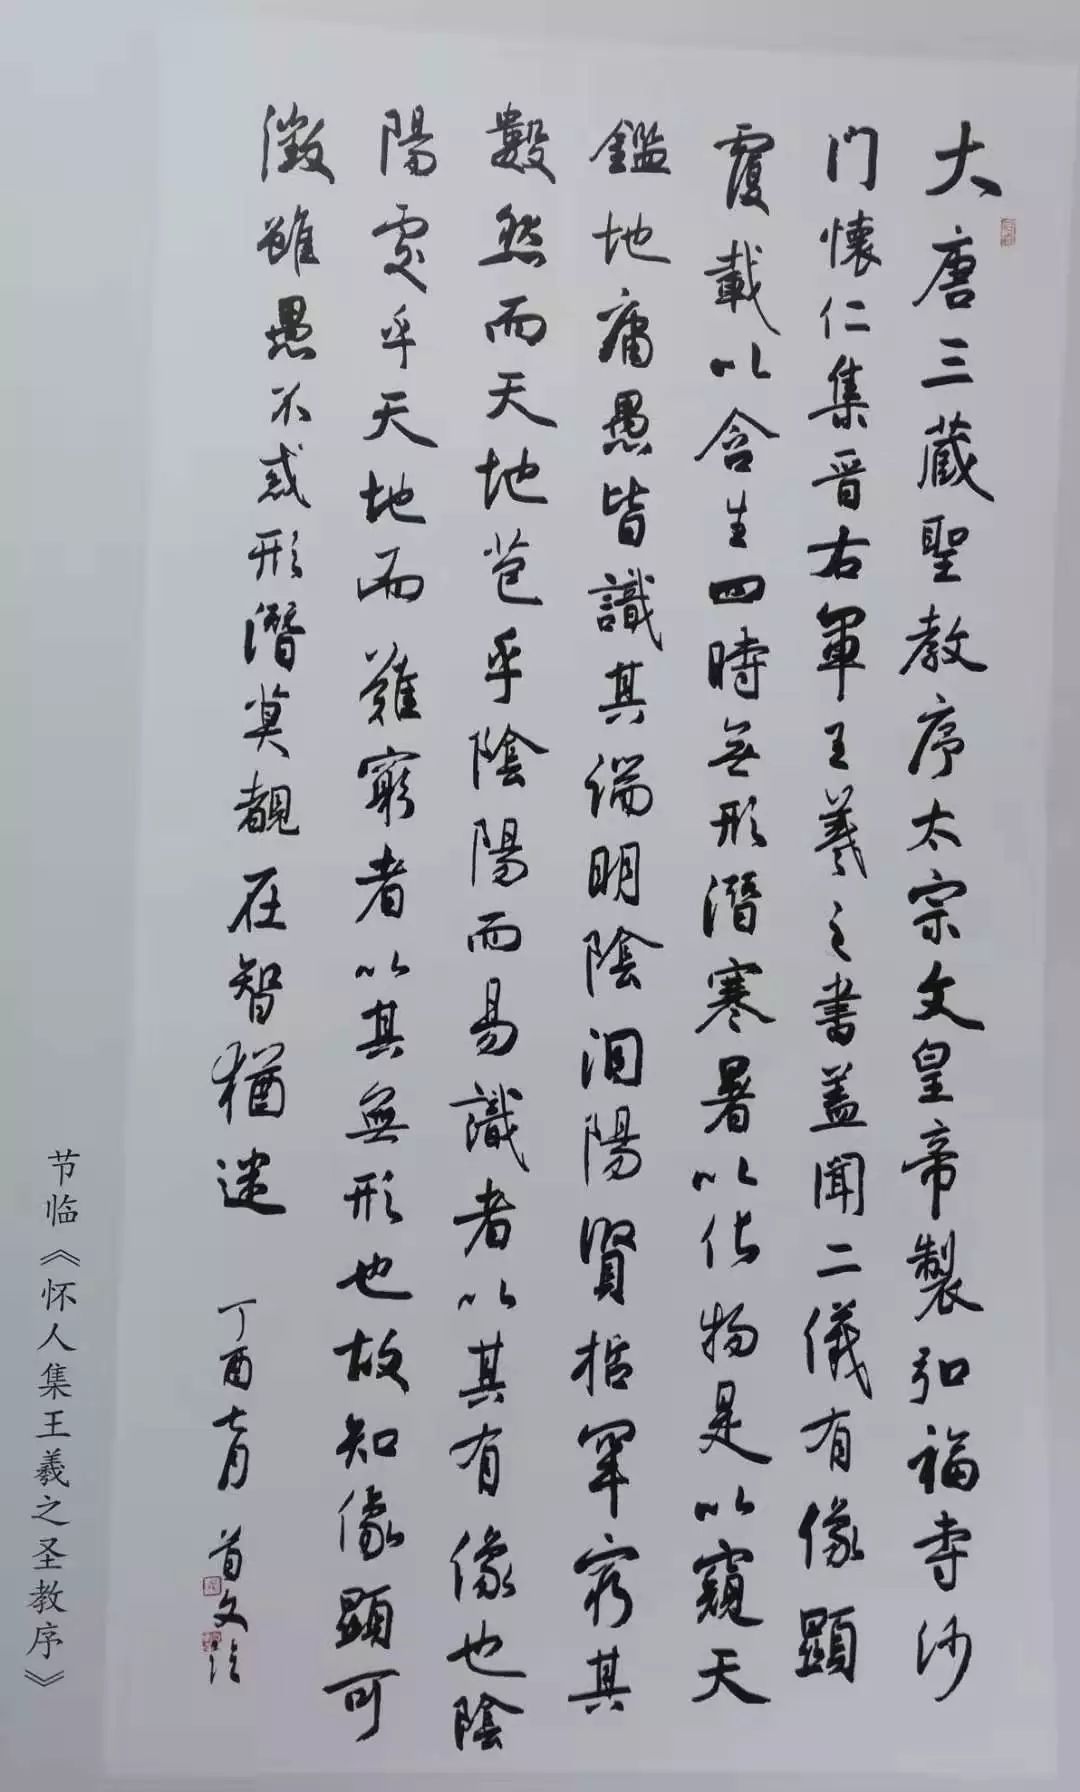 大唐三蔵聖教序太宗文皇帝製弘福寺沙
门懐仁集晋右軍王羲之書蓋聞二儀有像顕
覆載以含生四時無形潛寒暑以化物是以窺天
鑑地庸愚皆識其端明陰洞陽賢哲罕窮其
數然而天地苞乎陰陽而易識者以其有像也陰
陽處乎天地而難窮者以其無形也故知像顕可
徵雖愚不惑形潛莫覩在智猶迷
丁酉七月
首文
节临《怀人集王羲之圣教序》